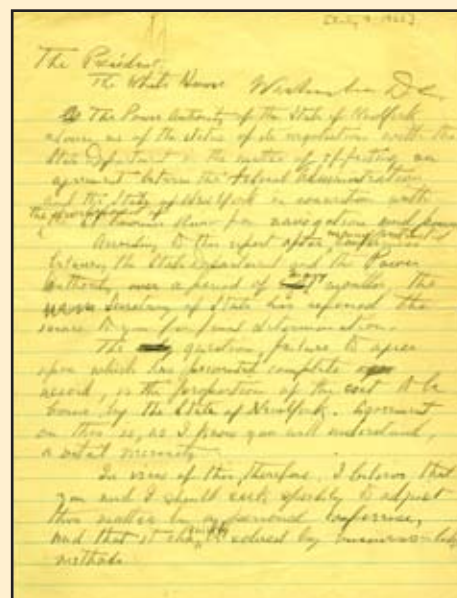 [July 9 1932]
The President,
The White House Washington D.C.
The Power Authority of the State of New York
advises me of the status of its negotiations with the
State Department in the matter of effecting an
agreement between the Federal Administration
and the State of New York in connection with
the development of
the St Lawrence River for navigation and power
According to this report after many protracted conferences
between the State Department and the Power
Authority over a period of many months, the
Secretary of State has referred the
issue to you for final determination.
The question, failure to agree
upon which has prevented complete
accord, is the proportion of the cost to be
borne by the State of New York. Agreement
on this is, as I know you will understand,
a vital necessity.
In view of this, therefore, I believe that
you and I should seek speedily to adjust
this matter by personal conference,
and that it should be solved by business-like
methods.